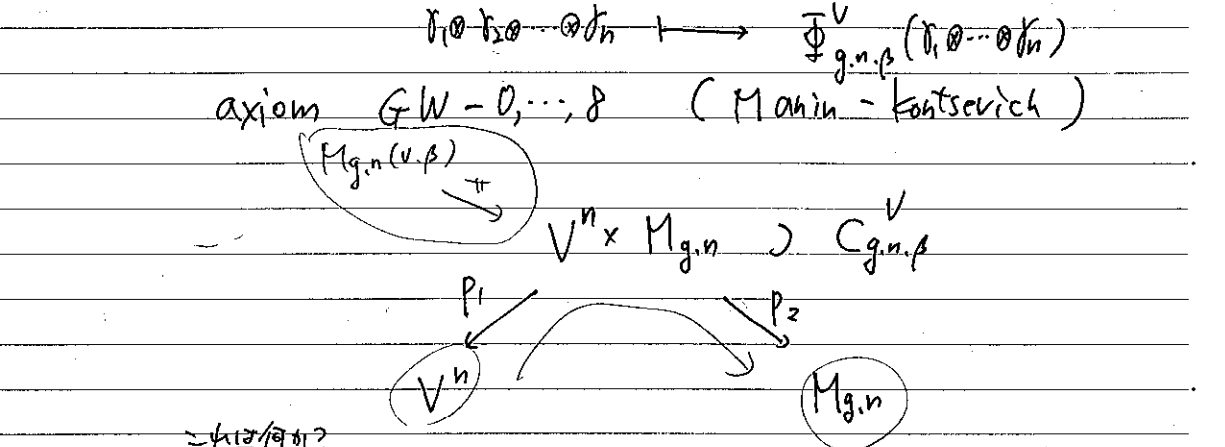 γ₁⊗γ₂⊗⋯⊗γₙ ⟼ Φ̄^V_{g.n.β}(γ₁⊗⋯⊗γₙ)
axiom GW-0,⋯,8 (Manin-kontsevich)
M_{g.n}(V.β)
π
Vⁿ × M_{g.n} ⊃ C^V_{g.n.β}
p₁ p₂
Vⁿ M_{g.n}
これは何か?